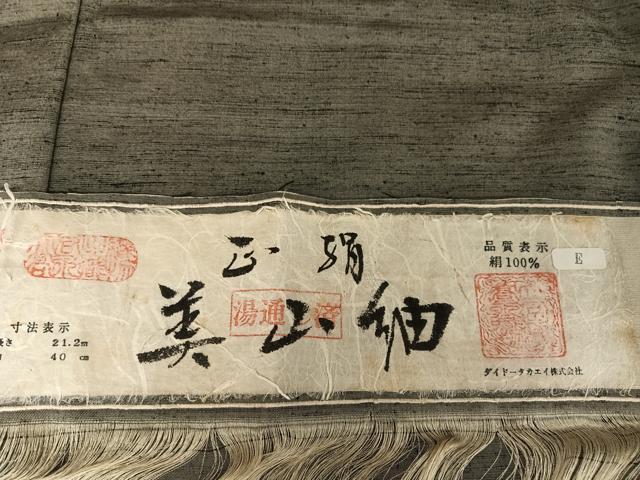 正絹
美山紬
湯通し済
品質表示
絹100%
E
寸法表示
長さ 21.2m
40 cm
ダイドータカエイ株式会社